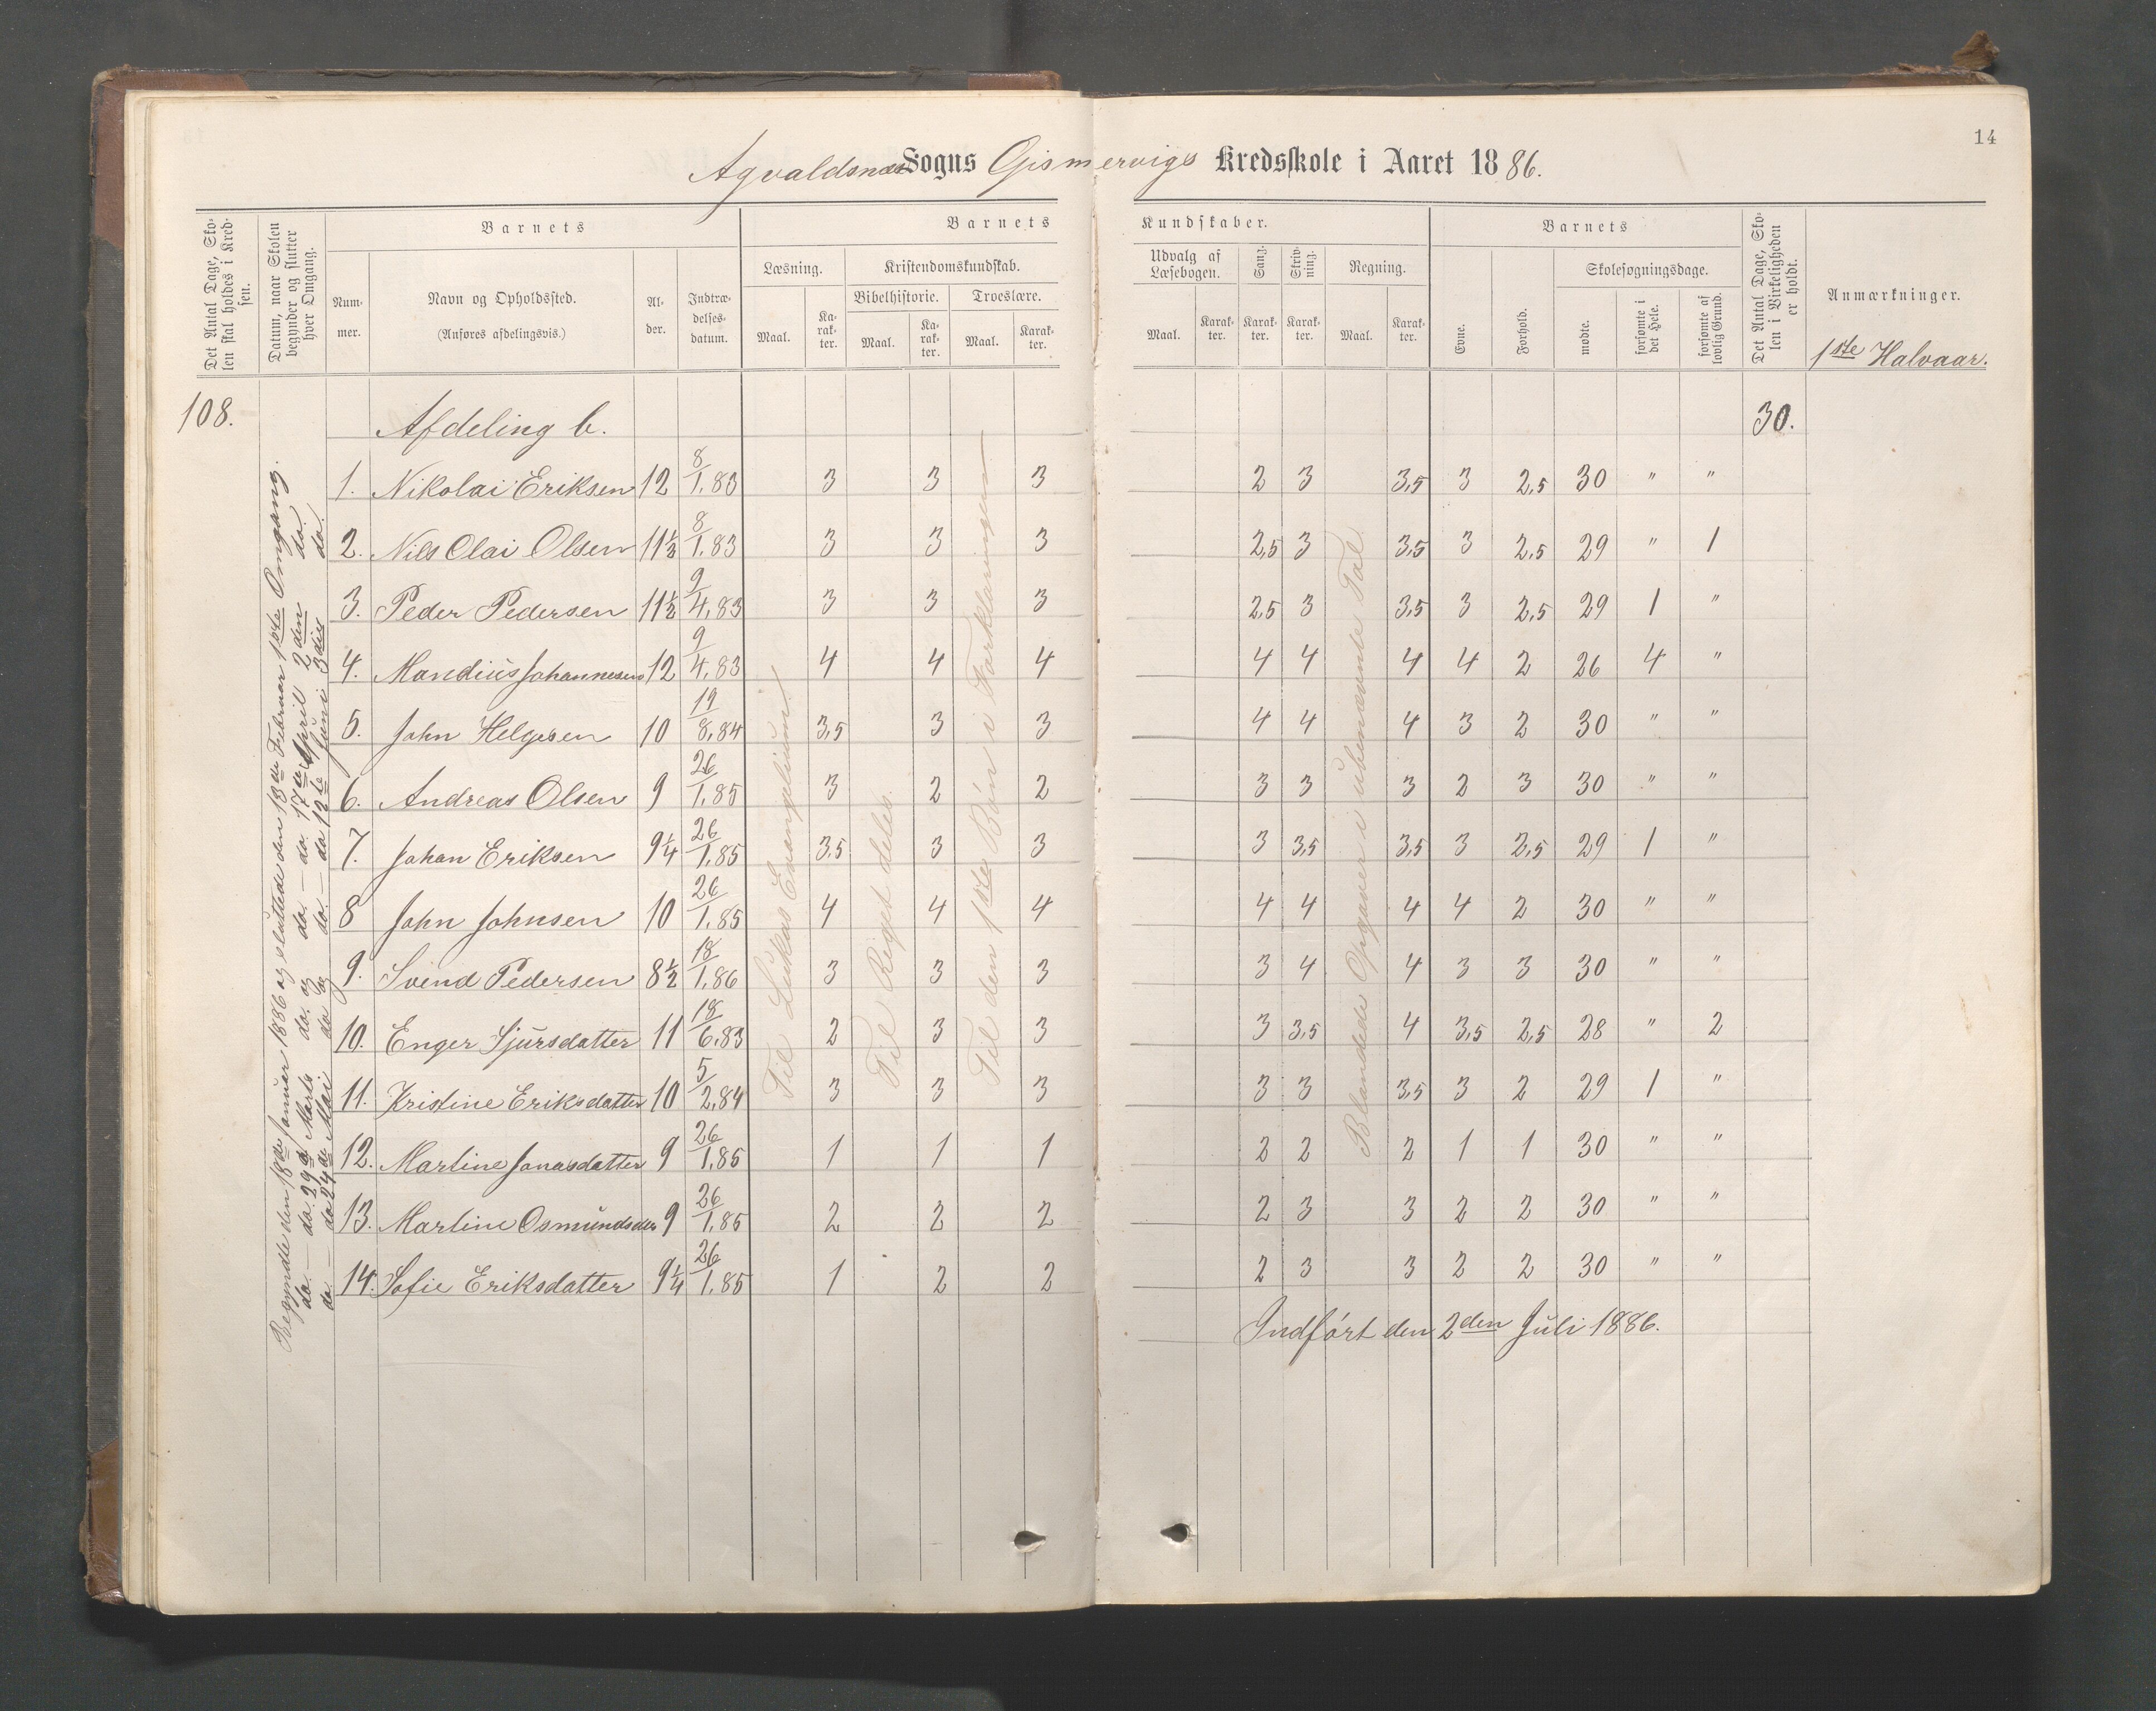 14
Agvaldsnæs Sogns Gismervigs Kredsskole i Aaret 1886.
Det Antal Dage, Skolen skal holdes i Kredsen.
Datum, naar Skolen begynder og slutter hver Omgang.
Barnets
Nummer.
Navn og Opholdssted.
(Anføres afdelingsvis.)
Alder.
Indtrædelsesdatum.
Barnets Kundskaber.
Læsning.
Maal.
Karakter.
Kristendomskundskab.
Bibelhistorie.
Maal.
Karakter.
Troeslære.
Maal.
Karakter.
Udvalg af Læsebogen.
Maal.
Karakter.
Sang.
Karakter.
Skrivning.
Karakter.
Regning.
Maal.
Karakter.
Barnets
Evne.
Forhold.
Skolesøgningsdage.
mødte.
forsømte i det Hele.
forsømte af lovlig Grund.
Det Antal Dage, Skolen i Virkeligheden er holdt.
Anmærkninger.
1ste Halvaar.
108. Afdeling b. 30.
1. Nikolai Eriksen 12 8/1.83 3 3 3 2 3 3,5 3 2,5 30 " "
2. Nils Olai Olsen 11½ 8/1.83 3 3 3 2,5 3 3,5 3 2,5 29 " 1
3. Peder Pedersen 11½ 9/4.83 3 3 3 2,5 3 3,5 3 2,5 29 1 "
4. Mandius Johannesen 12 9/4.83 4 4 4 4 4 4 4 2 26 4 "
5. John Helgesen 10 19/8.84 3,5 3 3 4 4 4 3 2 30 " "
6. Andreas Olsen 9 26/1.85 3 2 2 3 3 3 2 3 30 " "
7. Johan Eriksen 9¼ 26/1.85 3,5 3 3 3 3,5 3,5 3 2,5 29 1 "
8 John Johnsen 10 26/1.85 4 4 4 4 4 4 4 2 30 " "
9. Svend Pedersen 8½ 18/1.86 3 3 3 3 4 4 3 3 30 " "
10. Enger Sjursdatter 11 18/6.83 2 3 3 3 3,5 4 3,5 2,5 28 " 2
11. Kristine Eriksdatter 10 5/2.84 3 3 3 3 3 3,5 3 2 29 1 "
12. Martine Jonasdatter 9 26/1.85 1 1 1 2 2 2 1 1 30 " "
13. Martine Osmundsdtr 9 26/1.85 2 2 2 2 3 3 2 2 30 " "
14. Sofie Eriksdatter 9¼ 26/1.85 1 2 2 2 3 3 2 2 30 " "
Indført den 2den Juli 1886.
Begynde den 18de Januar 1886 og sluttede den 13de Februar 1ste Omgang.
do. — do. 29de Marts do. og do. — do. 17de April 2den do.
do. — do 24de Mai do og do. — do 12te Juni 3die do.
Til Lukas Evangelium.
Til Riget deles.
Til den 1ste Bøn i Forklaringen
Blandede Opgaver i ubenævnte Tal.